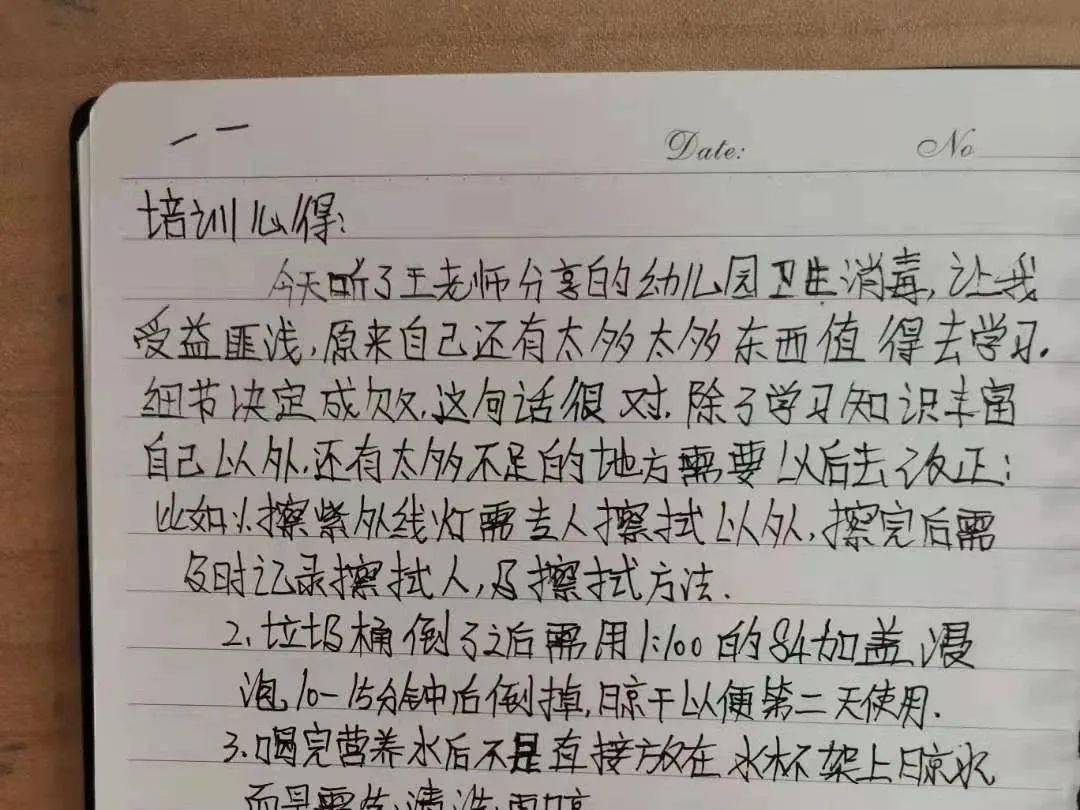 Date: No
培训心得:
今天听了王老师分享的幼儿园卫生消毒,让我
受益匪浅,原来自己还有太多太多东西值得去学习.
细节决定成败,这句话很对.除了学习知识丰富
自己以外,还有太多不足的地方需要以后去改正:
比如1.擦紫外线灯需专人擦拭以外,擦完后需
及时记录擦拭人,及擦拭方法.
2.垃圾桶倒了之后需用1:100的84加盖浸
泡10-15分钟后倒掉,晾干以便第二天使用.
3.喝完营养水后不是直接放在水杯架上晾水
而是需先清洗再晾